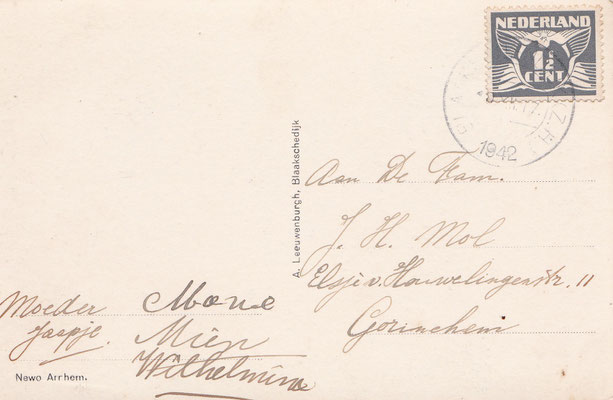 NEDERLAND
1½
CENT
1942
A. Leeuwenburgh, Blaakschedijk
Aan De Fam.
J. H. Mol
Elsje v. Houwelingenstr. 11
Gorinchem
Moeder
Jaapje.
Mien
Wilhelmina
Newo Arnhem.